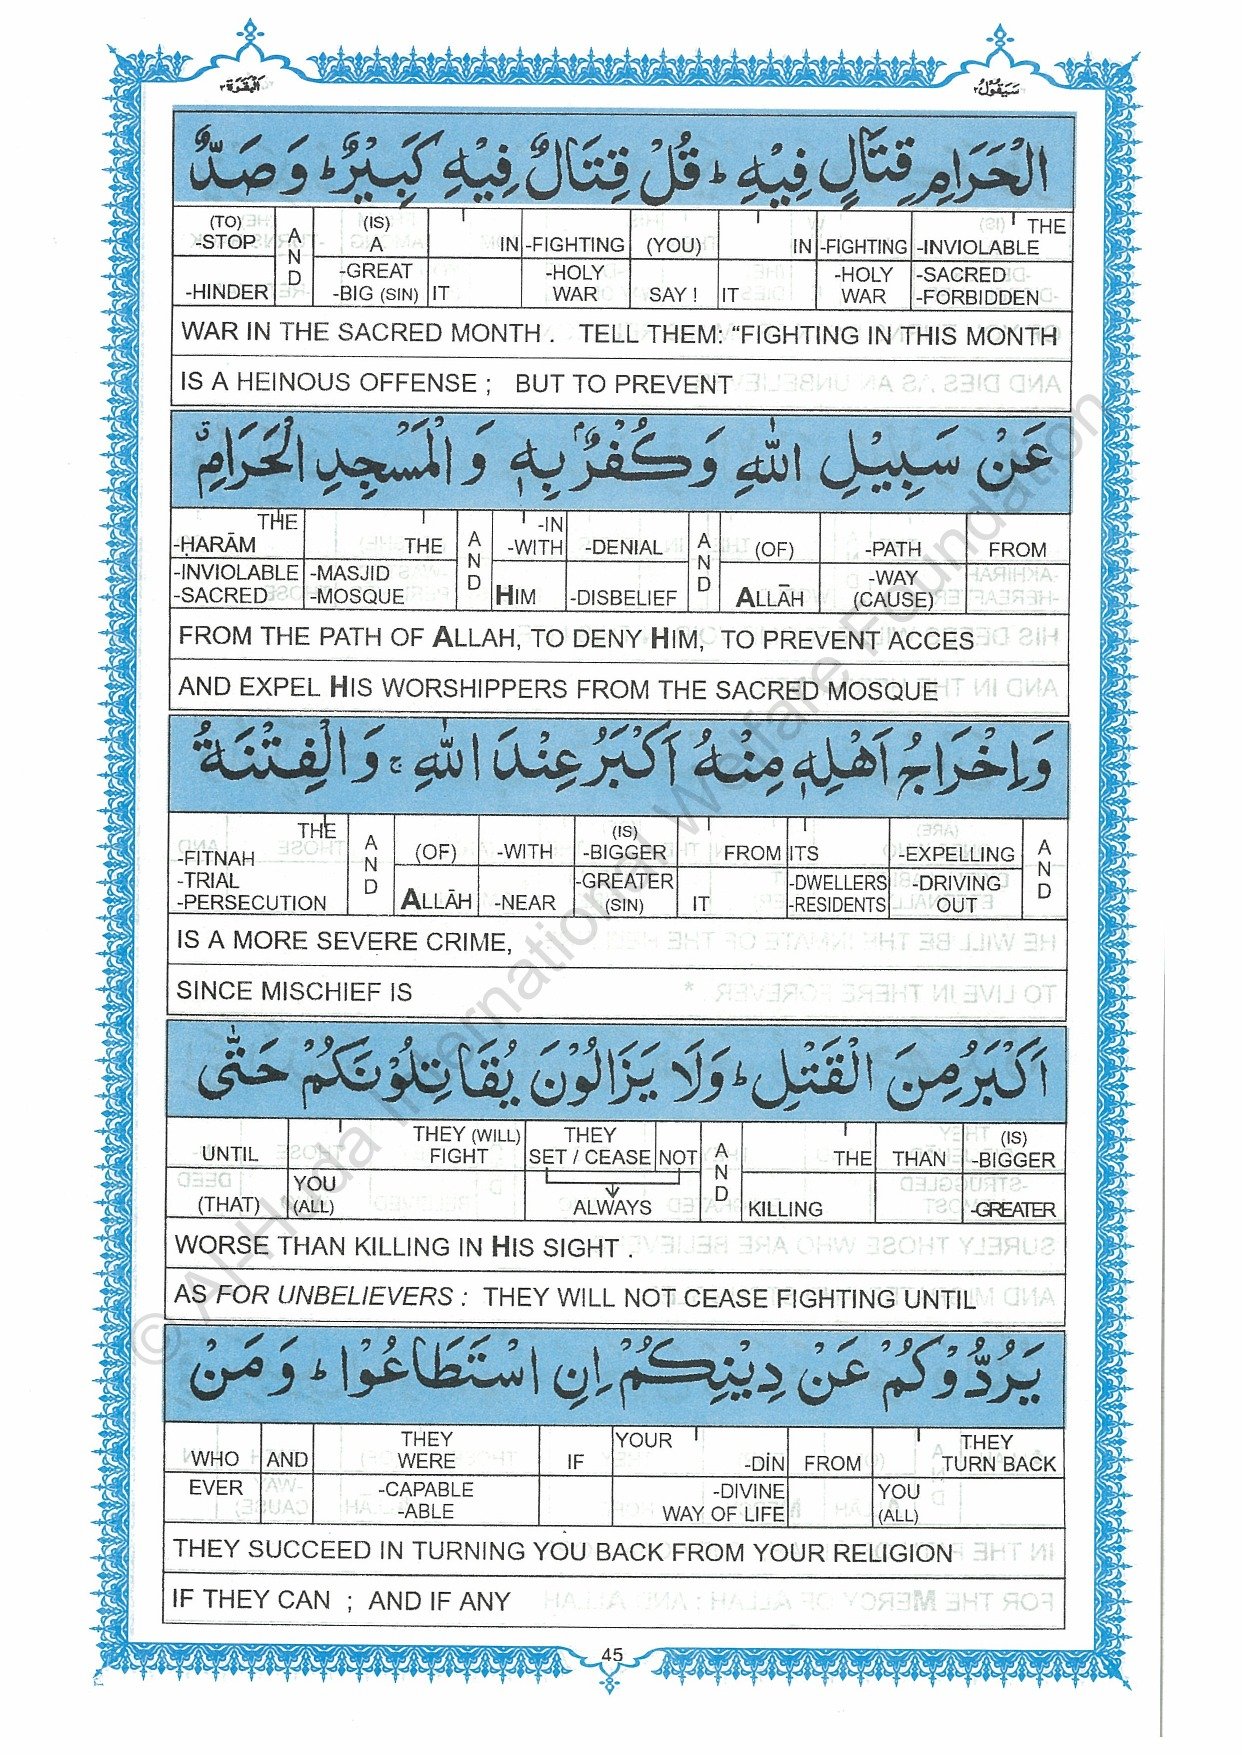 البقرة ٢
سيقول ٢
الْحَرَامِ قِتَالٍ فِيْهِ ؕ قُلْ قِتَالٌ فِيْهِ كَبِيْرٌ ؕ وَ صَدٌّ
(TO) -STOP AND (IS) A IN -FIGHTING (YOU) IN -FIGHTING THE -INVIOLABLE
-HINDER -GREAT -BIG (SIN) IT -HOLY WAR SAY ! IT -HOLY WAR -SACRED -FORBIDDEN
WAR IN THE SACRED MONTH . TELL THEM: “FIGHTING IN THIS MONTH
IS A HEINOUS OFFENSE ; BUT TO PREVENT
عَنْ سَبِيْلِ اللّٰهِ وَ كُفْرٌۢ بِهٖ وَ الْمَسْجِدِ الْحَرَامِ ۗ
THE -ḤARĀM THE AND -IN -WITH -DENIAL AND (OF) -PATH FROM
-INVIOLABLE -SACRED -MASJID -MOSQUE HIM -DISBELIEF ALLĀH -WAY (CAUSE)
FROM THE PATH OF ALLAH, TO DENY HIM, TO PREVENT ACCES
AND EXPEL HIS WORSHIPPERS FROM THE SACRED MOSQUE
وَ اِخْرَاجُ اَهْلِهٖ مِنْهُ اَكْبَرُ عِنْدَ اللّٰهِ ۚ وَ الْفِتْنَةُ
THE -FITNAH AND (OF) -WITH (IS) -BIGGER FROM ITS -EXPELLING AND
-TRIAL -PERSECUTION ALLĀH -NEAR -GREATER (SIN) IT -DWELLERS -RESIDENTS -DRIVING OUT
IS A MORE SEVERE CRIME,
SINCE MISCHIEF IS
اَكْبَرُ مِنَ الْقَتْلِ ؕ وَلَا يَزَالُوْنَ يُقَاتِلُوْنَكُمْ حَتّٰى
UNTIL THEY (WILL) FIGHT THEY SET / CEASE NOT AND THE THAN (IS) -BIGGER
(THAT) YOU (ALL) ALWAYS KILLING -GREATER
WORSE THAN KILLING IN HIS SIGHT .
AS FOR UNBELIEVERS : THEY WILL NOT CEASE FIGHTING UNTIL
يَرُدُّوْكُمْ عَنْ دِيْنِكُمْ اِنِ اسْتَطَاعُوْا ؕ وَ مَنْ
WHO AND THEY WERE IF YOUR -DĪN FROM THEY TURN BACK
EVER -CAPABLE -ABLE -DIVINE WAY OF LIFE YOU (ALL)
THEY SUCCEED IN TURNING YOU BACK FROM YOUR RELIGION
IF THEY CAN ; AND IF ANY
45
© Al-Huda International Welfare Foundation